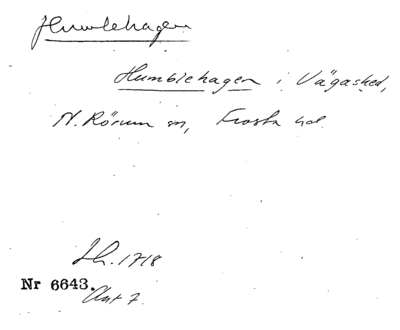 Humlehagen
Humblehagen i Vägasked,
N. Rörum sn, Frosta hd.
Lh. 1718
Nr 6643.
Akt 7.